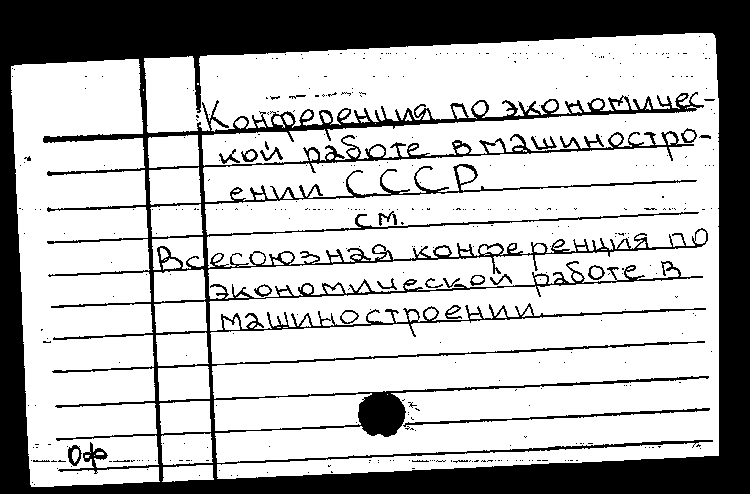 Конференция по экономичес-
кой работе в машиностро-
ении СССР.
см.
Всесоюзная конференция по
экономической работе в
машиностроении.
Оф